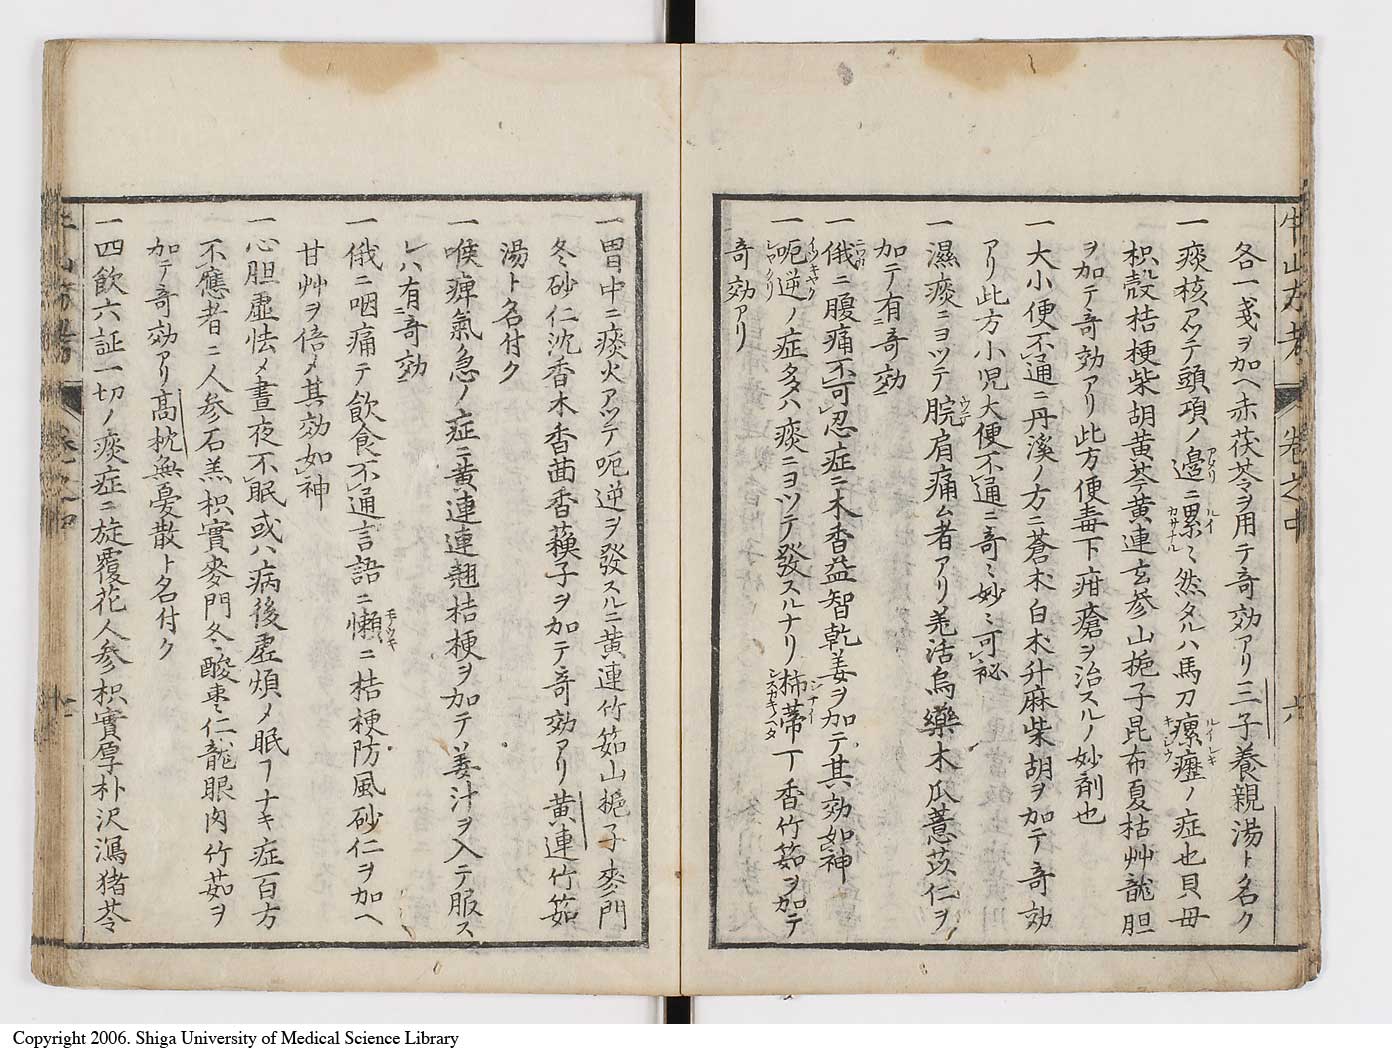 牛山方考 卷之中 六
各一戔ヲ加ヘ赤茯苓ヲ用テ奇効アリ三子養親湯ト名ク
一痰核アッテ頭項ノ邊ニ累〻然タルハ馬刀瘰癧ノ症也貝母
枳殻桔梗柴胡黄芩黄連玄参山梔子昆布夏枯艸龍胆
ヲ加テ奇効アリ此方便毒下疳瘡ヲ治スルノ妙剤也
一大小便不通ニ丹溪ノ方ニ蒼朮白朮升麻柴胡ヲ加テ奇効
アリ此方小児大便不通ニ奇〻妙〻可秘
一濕痰ニヨッテ脘肩痛ム者アリ羌活烏藥木瓜薏苡仁ヲ
加テ有奇効
一俄ニ腹痛不可忍症ニ木香益智乾姜ヲ加テ其効如神
一呃逆ノ症多ハ痰ニヨッテ發スルナリ柿蒂丁香竹茹ヲ加テ
奇効アリ
一胃中ニ痰火アッテ呃逆ヲ發スルニ黄連竹筎山梔子麥門
冬砂仁沈香木香茴香蘓子ヲ加テ奇効アリ黄連竹筎
湯ト名付ク
一喉痺氣急ノ症ニ黄連連翹桔梗ヲ加テ姜汁ヲ入テ服ス
レハ有奇効
一俄ニ咽痛テ飲食不通言語ニ懶ニ桔梗防風砂仁ヲ加ヘ
甘艸ヲ倍〆其効如神
一心胆虚怯〆晝夜不眠或ハ病後虚煩〆眠ヿナキ症百方
不應者ニ人参石羔枳實麥門冬酸棗仁龍眼肉竹茹ヲ
加テ奇効アリ高枕無憂散ト名付ク
一四飲六証一切ノ痰症ニ旋覆花人参枳實厚朴沢瀉猪苓
Copyright 2006. Shiga University of Medical Science Library